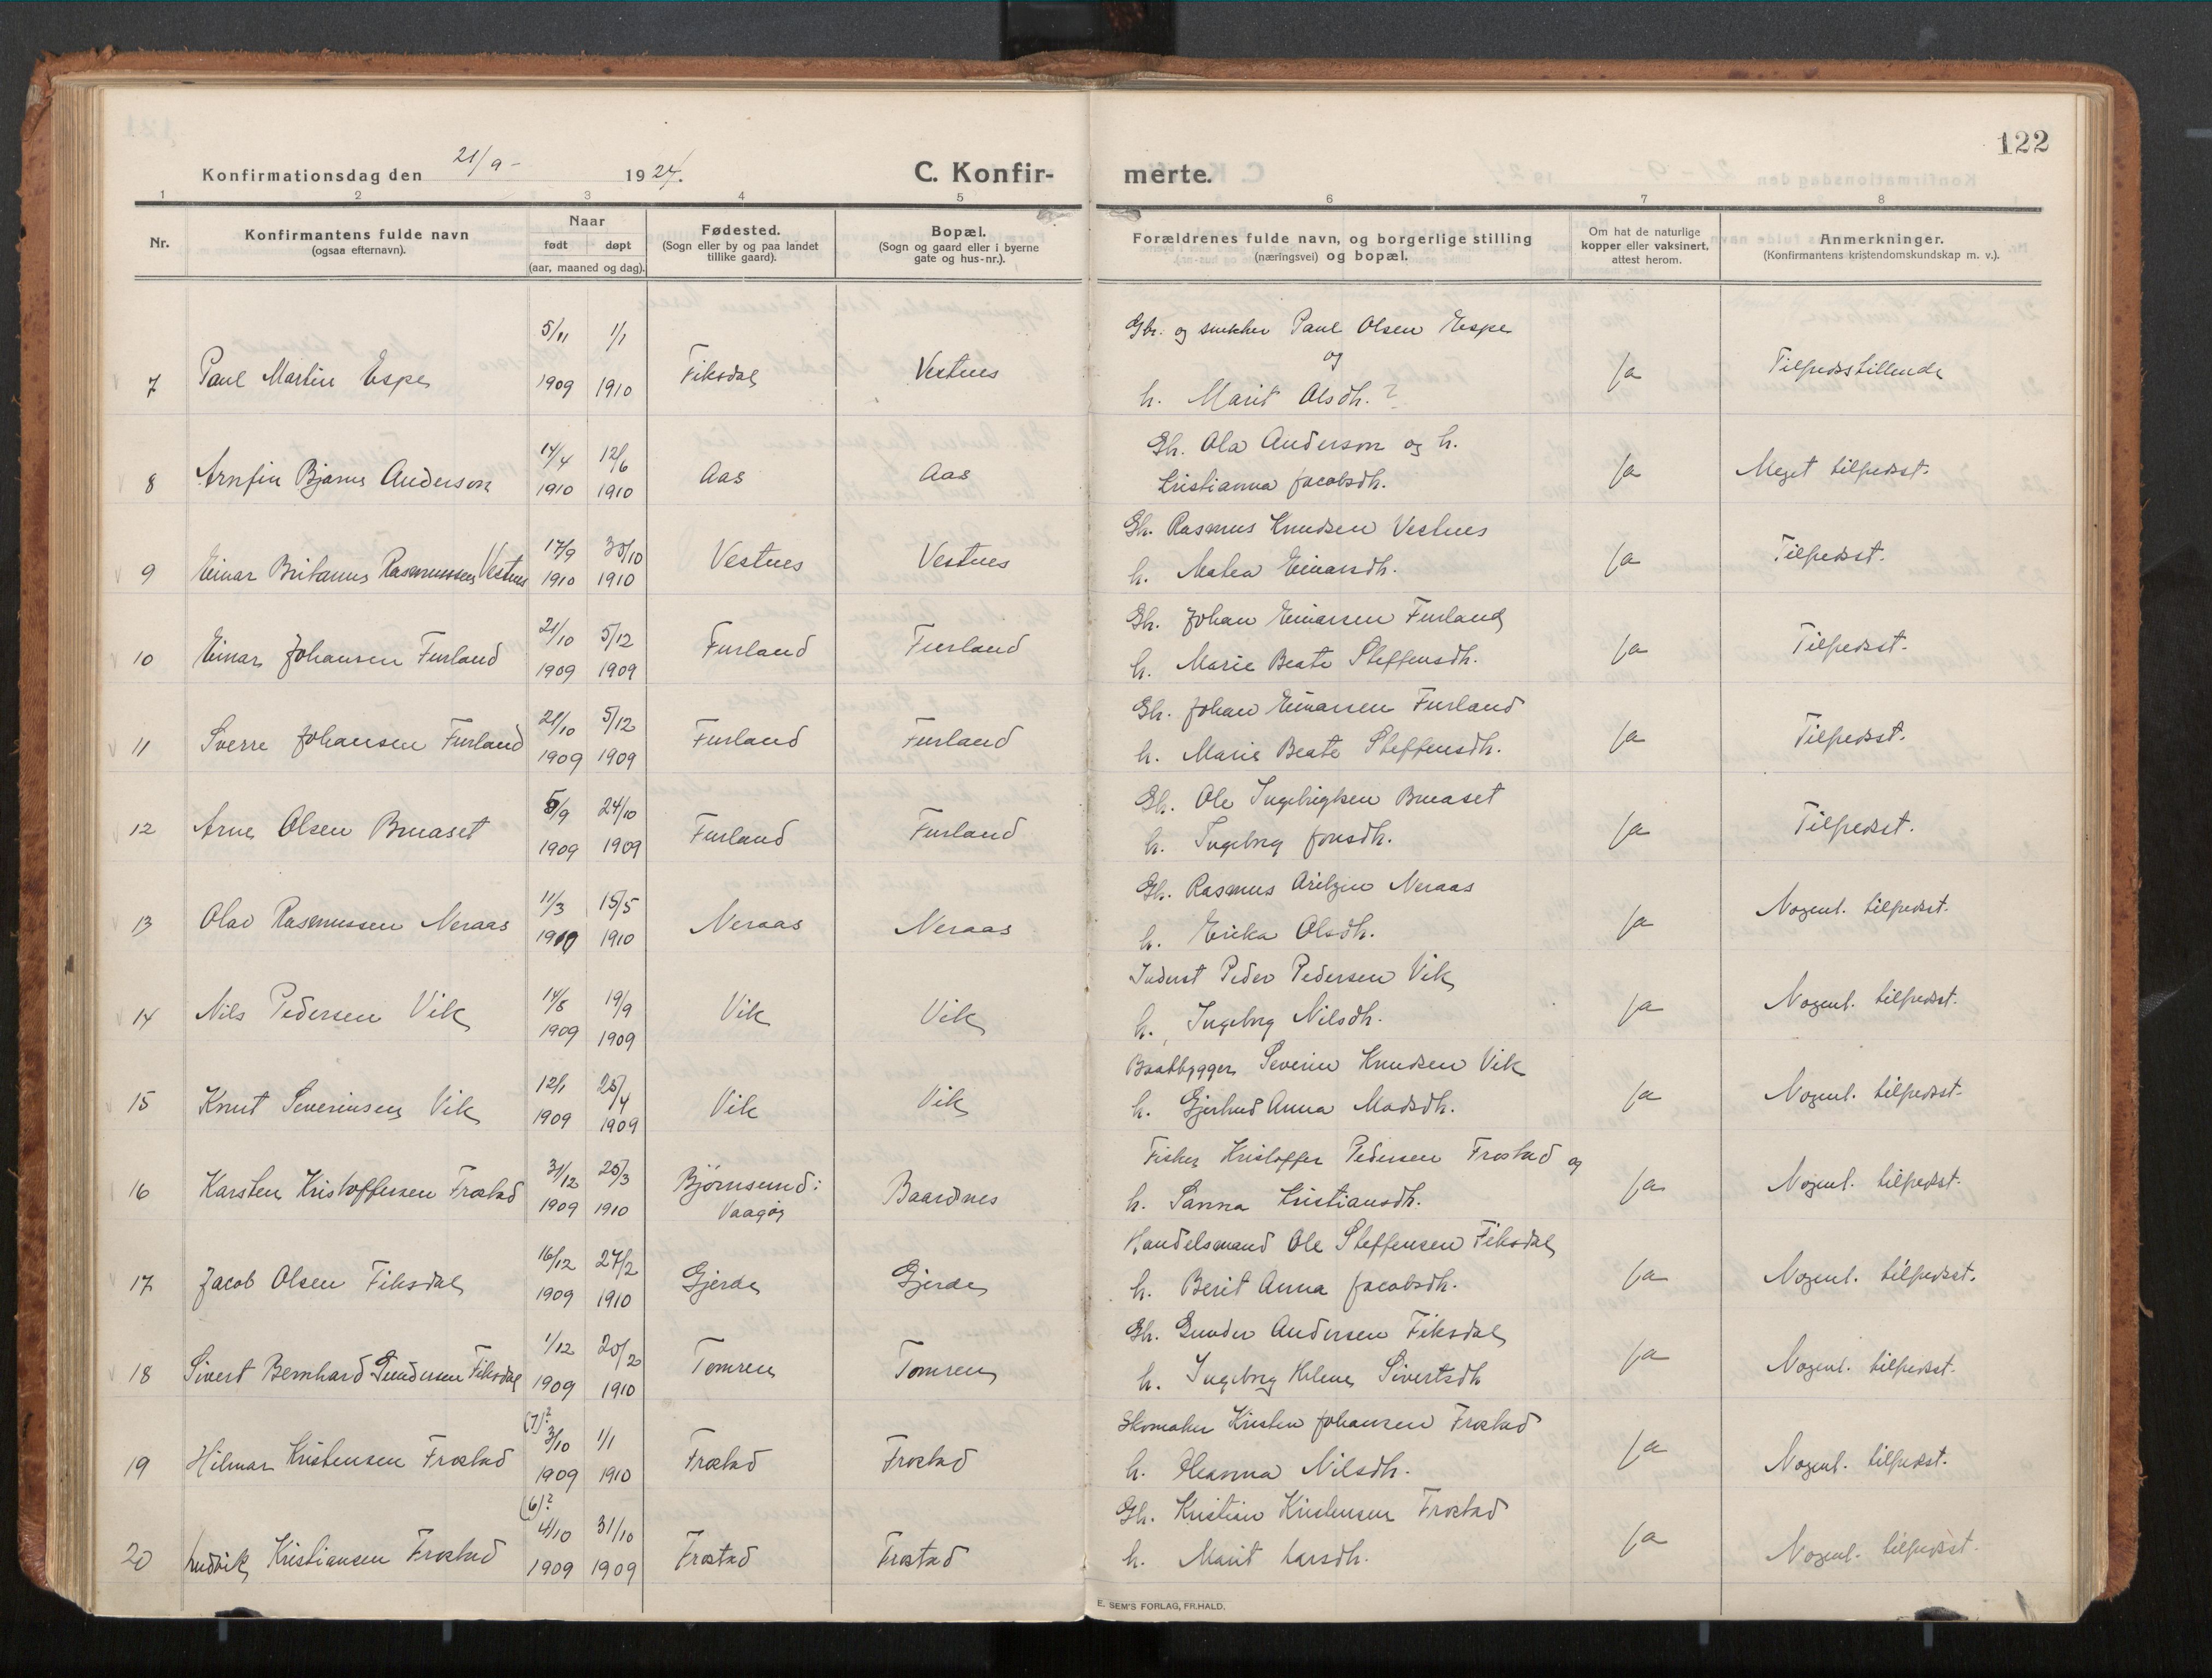 122
Konfirmationsdag den 21/9 - 1924.
C. Konfir- merte.
1 2 3 4 5 6 7 8
Nr.
Konfirmantens fulde navn
(ogsaa efternavn).
Naar
født døpt
(aar, maaned og dag).
Fødested.
(Sogn eller by og paa landet
tillike gaard).
Bopæl.
(Sogn og gaard eller i byerne
gate og hus-nr.).
Forældrenes fulde navn, og borgerlige stilling
(næringsvei) og bopæl.
Om hat de naturlige
kopper eller vaksinert,
attest herom.
Anmerkninger.
(Konfirmantens kristendomskundskap m. v.).
5/11 1/1 Gbr. og snekker Paul Olsen Espe
og
7 Paul Martin Espe 1909 1910 Fiksdal Vestnes h. Marit Olsdh. ? ja Tilfredsstillende
14/4 12/6 Gbr. Ola Anderson og h.
8 Arnfin Bjarne Anderson 1910 1910 Aas Aas Kristianna Jacobsdh. ja Meget tilfredsst.
17/9 30/10 Gbr. Rasmus Knudsen Vestnes
9 Einar Britanus Rasmussen Vestnes 1910 1910 Vestnes Vestnes h. Matea Einarsdh. ja Tilfredsst.
21/10 5/12 Gbr. Johan Einarsen Furland
10 Einar Johansen Furland 1909 1909 Furland Furland h. Marie Beate Steffensdh. ja Tilfredsst.
21/10 5/12 Gbr. Johan Einarsen Furland
11 Sverre Johansen Furland 1909 1909 Furland Furland h. Marie Beate Steffensdh. ja Tilfredsst.
5/9 24/10 Gbr. Ole Ingebrigtsen Bruaset
12 Arne Olsen Bruaset 1909 1909 Furland Furland h. Ingeborg Jonsdh. ja Tilfredsst.
11/3 15/5 Gbr. Rasmus Arilzen Neraas
13 Olav Rasmussen Neraas 1910 1910 Neraas Neraas h. Erika Olsdh. ja Nogenl. tilfredsst.
14/8 19/9 Inderst Peder Pedersen Vik
14 Nils Pedersen Vik 1909 1909 Vik Vik h. Ingeborg Nilsdh. ja Nogenl. tilfredsst.
12/1 25/4 Baatbygger Severin Knudsen Vik
15 Knut Severinsen Vik 1909 1909 Vik Vik h. Gjertrud Anna Madsdh. ja Nogenl. tilfredsst.
31/12 25/3 Fisker Kristoffer Pedersen Frostad og
16 Karsten Kristoffersen Frostad 1909 1910 Bjørnsund: Vaagøy Baardnes h. Sanna Kristiansdh. ja Nogenl. tilfredsst.
16/12 27/2 Handelsmand Ole Steffensen Fiksdal
17 Jacob Olsen Fiksdal 1909 1910 Gjerde Gjerde h. Berit Anna Jacobsdh. ja Nogenl. tilfredsst.
1/12 20/2 Gbr. Gunder Andersen Fiksdal
18 Sivert Bernhard Gundersen Fiksdal 1909 1910 Tomren Tomren h. Ingeborg Helene Sivertsdh ja Nogenl. tilfredsst.
(7)? 3/10 1/1 Skomaker Kristen Johansen Frostad
19 Hilmar Kristensen Frostad 1909 1910 Frostad Frostad h. Hanna Nilsdh. ja Nogenl. tilfredsst.
(6)? 4/10 31/10 Gbr. Kristian Kristensen Frostad
20 Ludvik Kristiansen Frostad 1909 1909 Frostad Frostad h. Marit Larsdh. ja Nogenl. tilfredsst.
E. SEM'S FORLAG, FR.HALD.